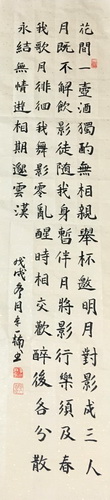 花間一壺酒獨酌無相親舉杯邀明月對影成三人
月既不解飲影徒隨我身暫伴月將影行樂須及春
我歌月徘徊我舞影零亂醒時相交歡醉後各分散
永結無情遊相期邈雲漢
戊戌冬月